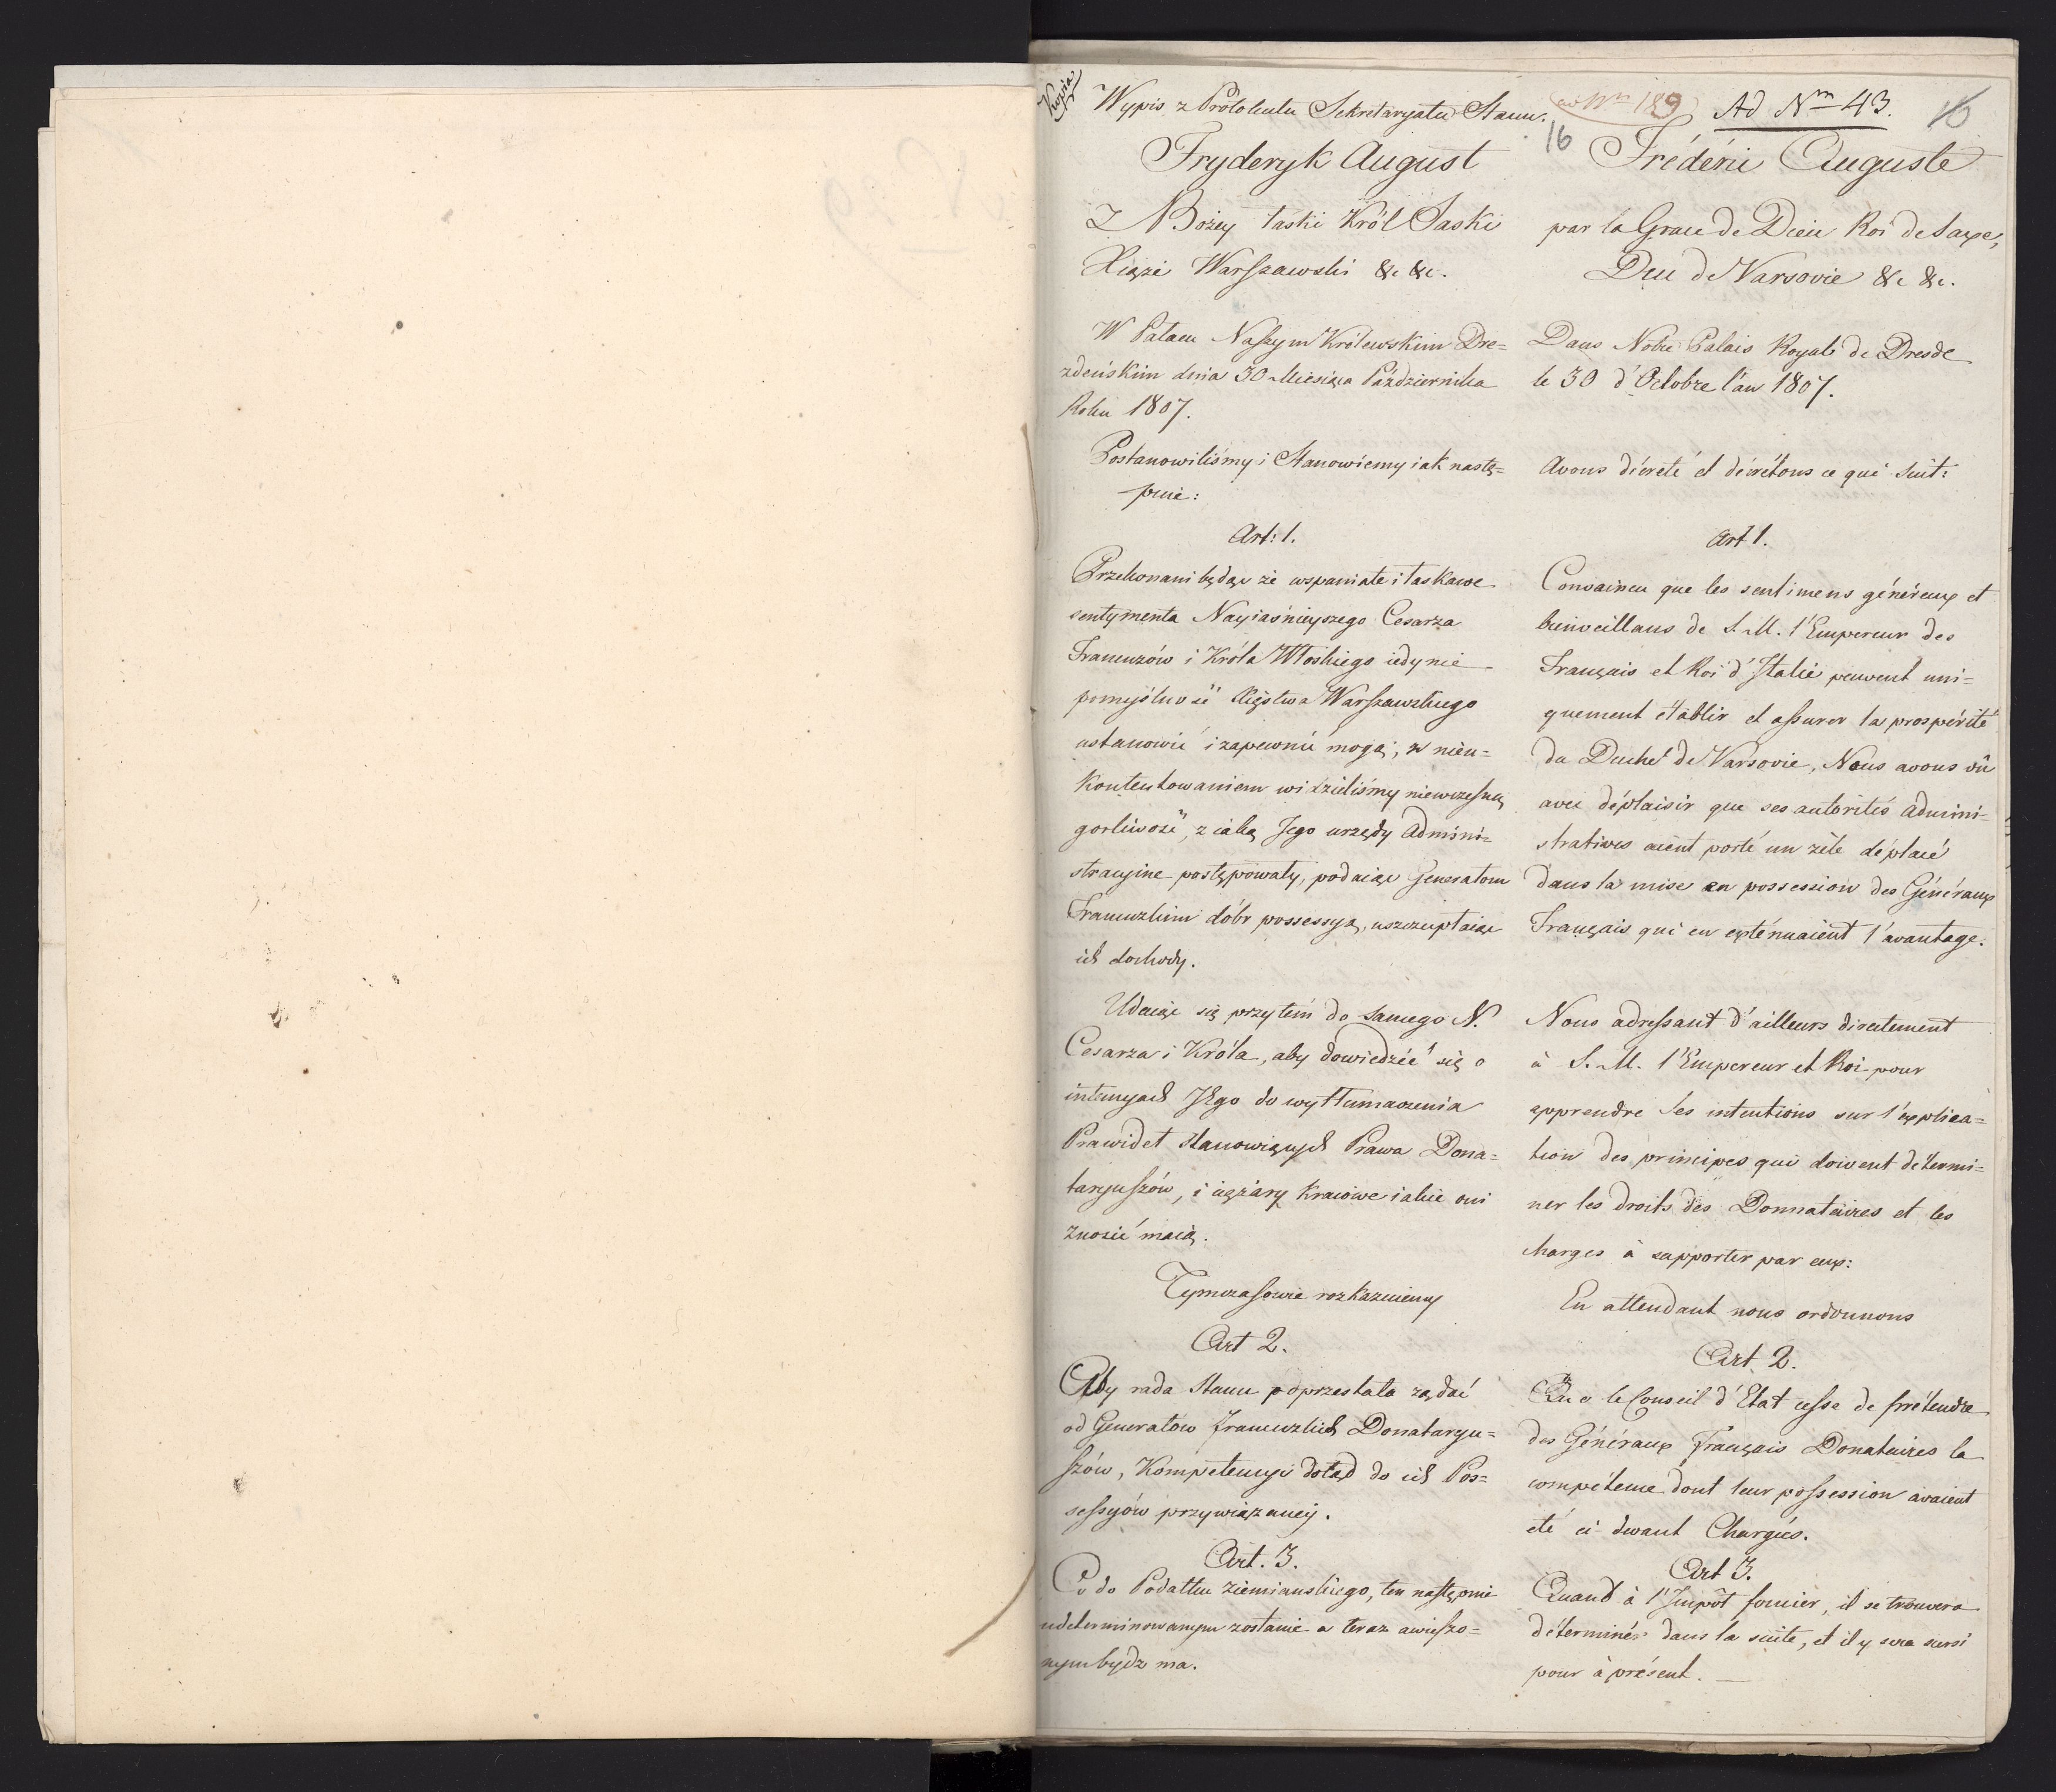 Kopia
Wypis z Protokułu Sekretaryatu Stanu.
ad Nm 189
Ad Nm 43.
16
16
Fryderyk August
Z Bożey Łaski Król Saski
Xiąże Warszawski &c &c.
W Pałacu Naszym Królewskim Dre=
zdeńskim dnia 30 Miesiąca Października
Roku 1807.
Postanowiliśmy i Stanowiemy iak nastę=
puie:
Art: 1.
Przekonani będąc że wspaniałe i łaskawe
sentymenta Nayiaśnieyszego Cesarza
Francuzów i Króla Włoskiego iedynie
pomyślność Xięstwa Warszawskiego
ustanowić i zapewnić mogą; z nieu=
kontentowaniem widzieliśmy niewczesną
gorliwość, z iaką Jego urzędy Admini=
stracyine postępowały, podaiąc Generałom
Francuzkim dóbr possessyą, uszczuplaiąc
ich dochody.
Udaiąc się przytém do samego N.
Cesarza i Króla, aby dowiedzieć się o
intencyach Jego do wytłumaczenia
Prawideł stanowiących Prawa Dona=
taryuszów, i ciężary kraiowe iakie oni
znosić maią.
Tymczasowie rozkazuiemy
Art 2.
Aby rada Stanu poprzestała żądać
od Generałów francuzkich Donataryu=
szów, Kompetencyi dotąd do ich Pos=
sessyów przywiązaney.
Art. 3.
Co do Podatku ziemianskiego, ten następnie
udeterminowanym zostanie a teraz zawieszo=
nym bydz ma.
Frédéric Auguste
par la Grace de Dieu Roi de Saxe,
Duc de Varsovie &c &c.
Dans Notre Palais Royale de Dresde
le 30 d'Octobre l'an 1807.
Avons décrété et décrétons ce qui suit:
Art 1.
Convaincu que les sentimens généreux et
bienveillans de S. M. l'Empereur des
Français et Roi d'Italie peuvent uni=
quement établir et assurer la prospérité
du Duché de Varsovie, Nous avons vû
avec déplaisir que ses autorités admini=
stratives aient porté un zèle déplacé
dans la mise en possession des Généraux
Français qui en exténuaient l'avantage.
Nous adressant d'ailleurs directement
à S. M. l'Empereur et Roi pour
apprendre Ses intentions sur l'explica=
tion des principes qui doivent détermi=
ner les droits des Donnataires et les
charges à supporter par eux:
En attendant nous ordonnons
Art 2.
Que le Conseil d'Etat cesse de prétendre
des Généraux français Donataires la
compétence dont leur possession avaient
été ci-devant Chargés.
Art 3.
Quand à l'Impôt foncier, il se trouvera
déterminér dans la suite, et il y sera sursi
pour à présent. —